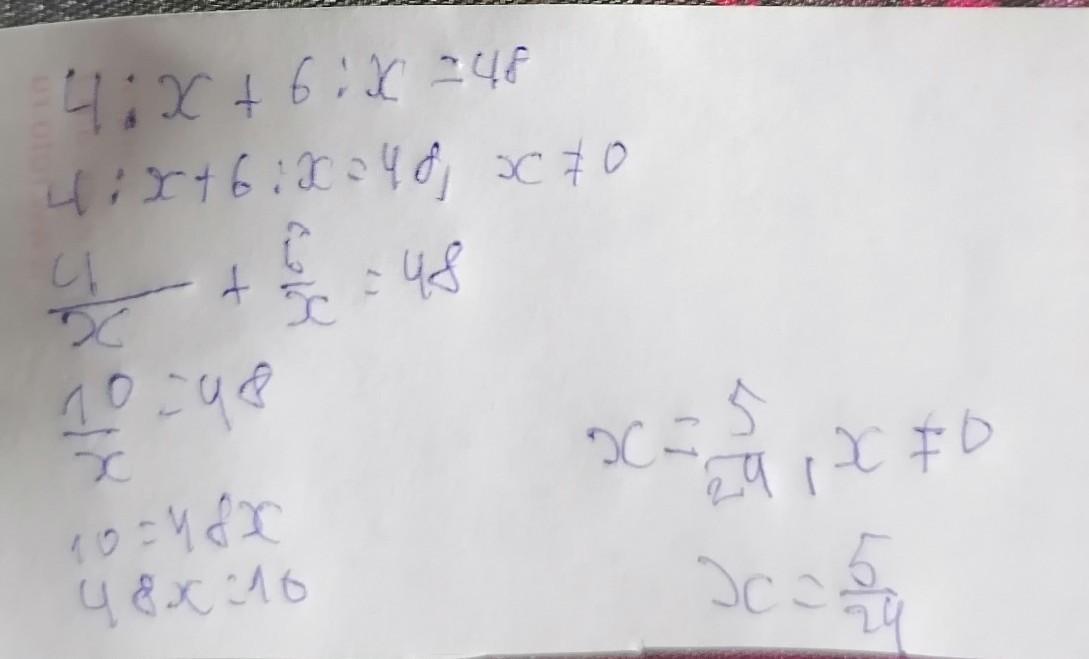 4:x+6:x=48
4:x+6:x=48, x≠0
4/x + 6/x = 48
10/x = 48
10=48x
48x=10
x=5/24, x≠0
x=5/24